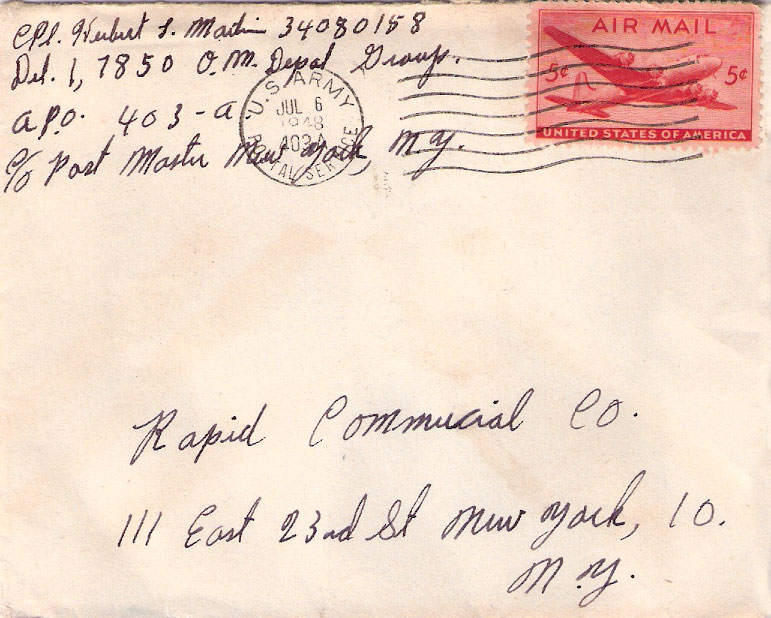 CPl. Herbert L. Martin 34080158
Det. 1, 7850 Q.M. Depot Group.
A.P.O. 403-A
c/o Post Master New York, N.Y.
U.S. ARMY
JUL 6
1948
403-A
POSTAL SERVICE
AIR MAIL
5¢ 5¢
UNITED STATES OF AMERICA
Rapid Commucial CO.
111 East 23rd St New York, 10.
N.Y.